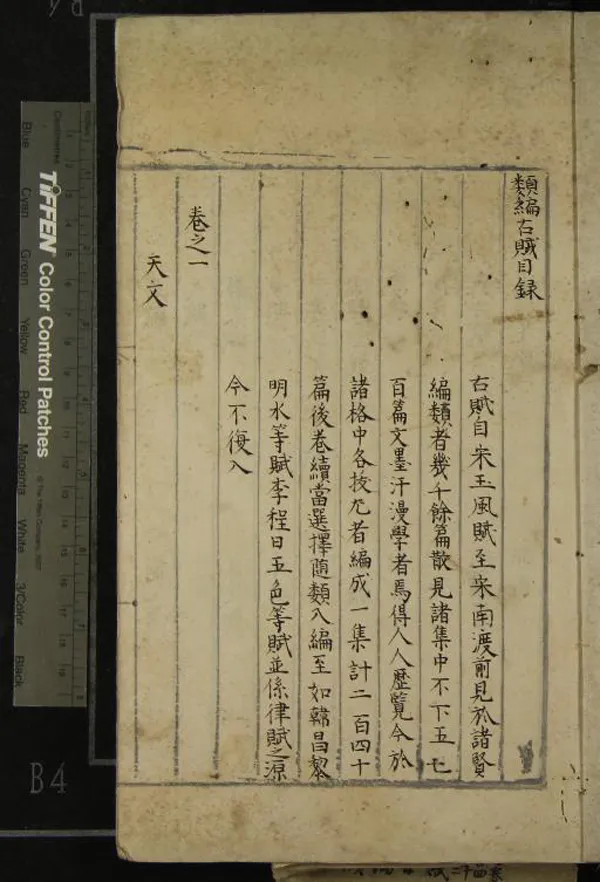 類編古賦目録
古賦自宋玉風賦至宋南渡前見於諸賢
編類者幾千餘篇散見諸集中不下五七
百篇文墨汗漫學者焉得人人歷覽今於
諸格中各按尤者編成一集計二百四十
篇後卷續當選擇隨類入編至如韓昌黎
明水等賦李程日五色等賦並係律賦之源
今不復入
卷之一
天文
TIFFEN Color Control Patches
© The Tiffen Company, 2007
Blue
Cyan
Green
Yellow
Red
Magenta
White
3/Color
Black
B4